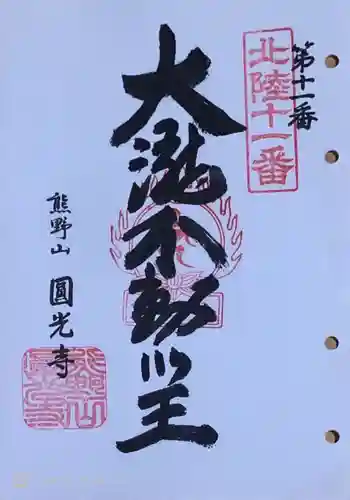 第十一番
北陸十一番
大瀧不動明王
熊野山 圓光寺